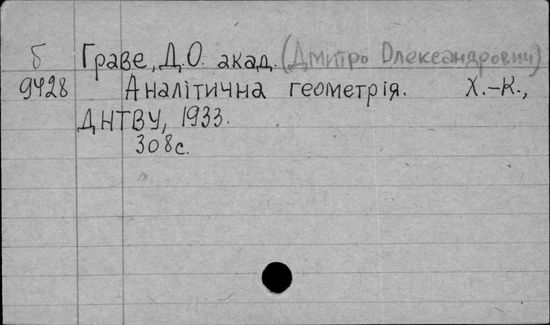 б Граве, Д.О. акад. (Дмитро Олександрович)
9428 Аналітична геометрія. Х.-К.,
ДНТВУ, 1933.
308с.